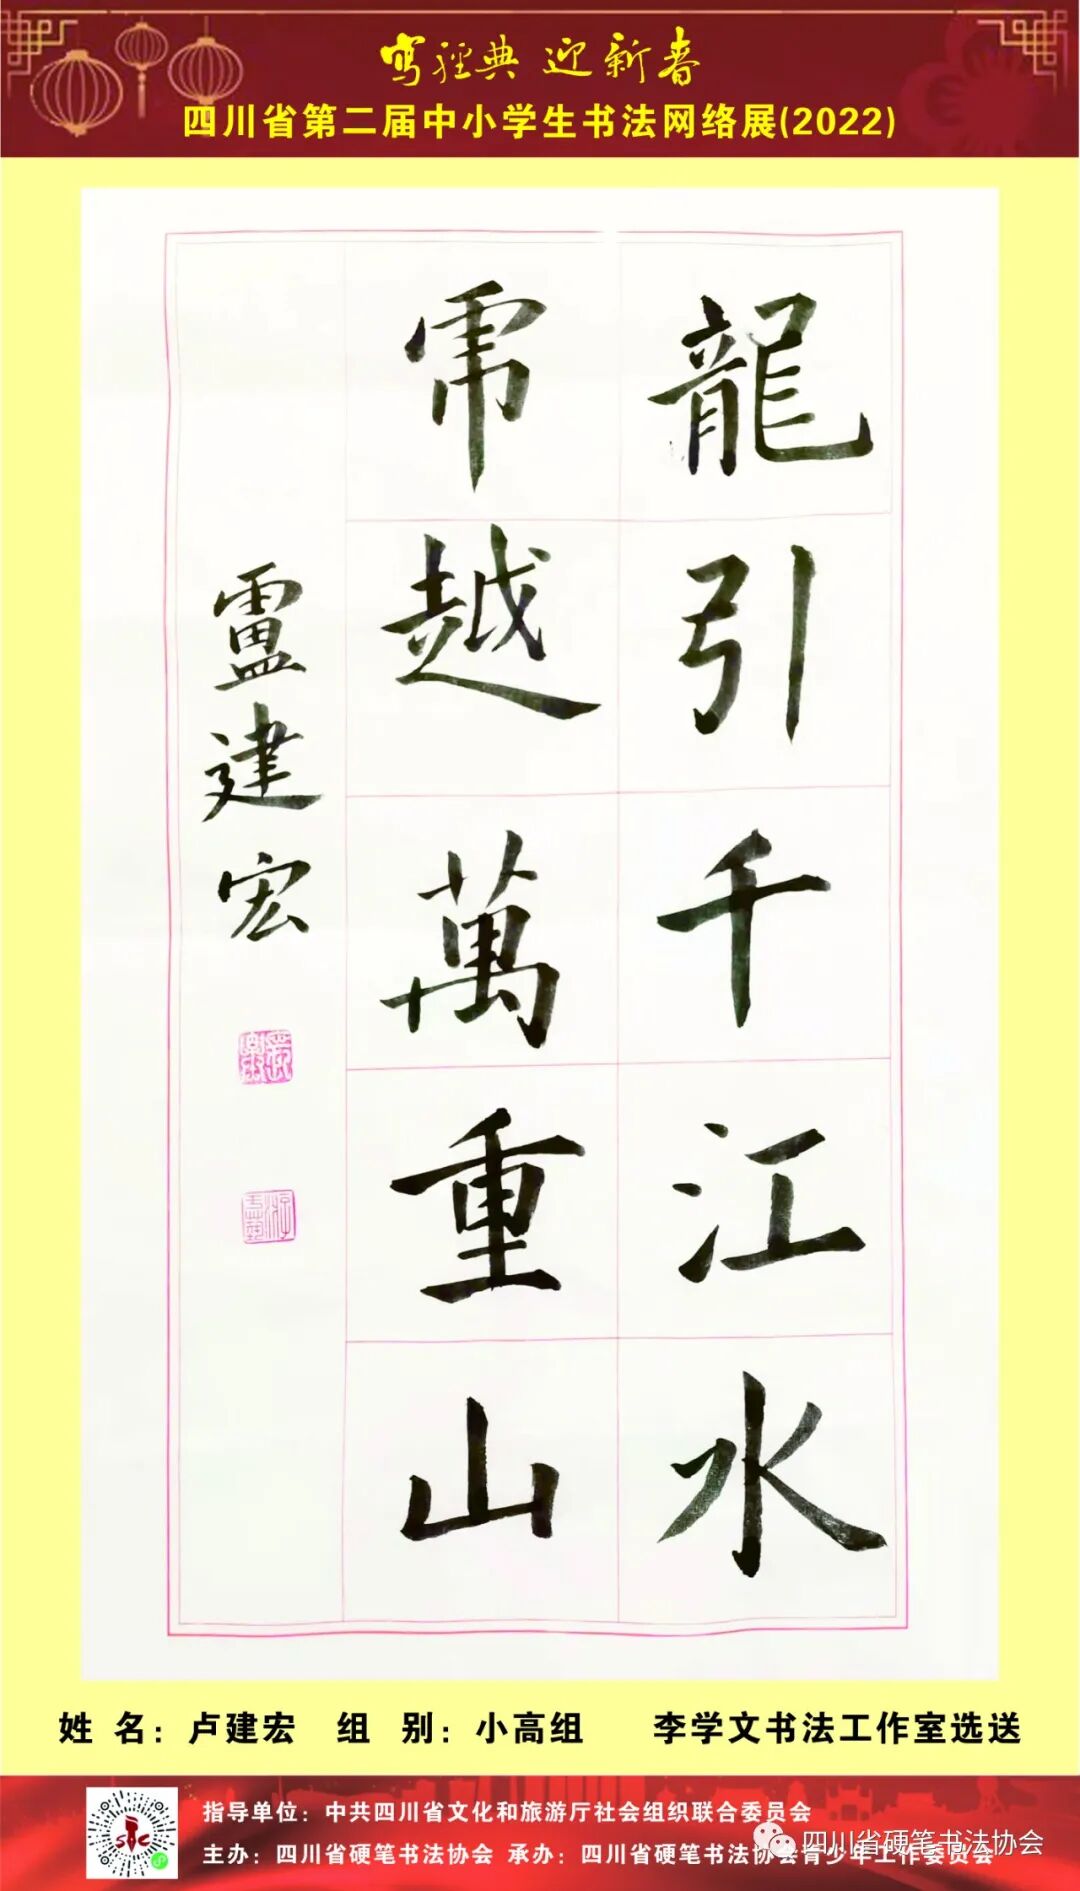 寫經典 迎新春
四川省第二届中小学生书法网络展(2022)
龍引千江水
虎越萬重山
盧建宏
姓 名：卢建宏 组 别：小高组 李学文书法工作室选送
指导单位：中共四川省文化和旅游厅社会组织联合委员会
主办：四川省硬笔书法协会 承办：四川省硬笔书法协会青少年工作委员会
四川省硬笔书法协会